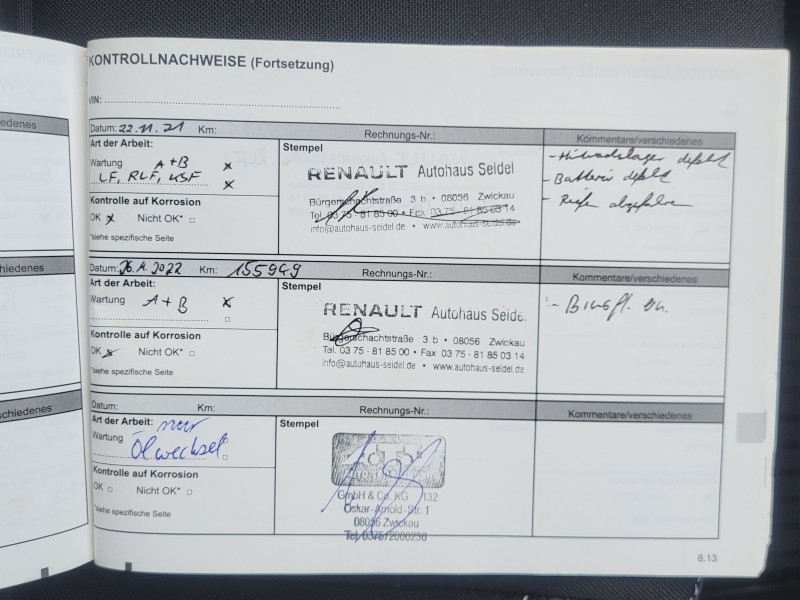 edenes
KONTROLLNACHWEISE (Fortsetzung)
VIN:
Datum: 22.11.21 Km: Rechnungs-Nr.: Kommentare/verschiedenes
Art der Arbeit:
Wartung A+B x
LF, RLF, KSF x
Kontrolle auf Korrosion
OK x Nicht OK* □
*siehe spezifische Seite
Stempel
RENAULT Autohaus Seidel
Bürgerschachtstraße 3 b • 08056 Zwickau
Tel. 03 75 - 81 85 00 • Fax 03 75 - 81 85 03 14
info@autohaus-seidel.de • www.autohaus-seidel.de
- Batterie defekt
- Reifen abgefahren
hiedenes
Datum: 2022 Km: 155949 Rechnungs-Nr.: Kommentare/verschiedenes
Art der Arbeit:
Wartung A+B x
□
Kontrolle auf Korrosion
OK x Nicht OK* □
*siehe spezifische Seite
Stempel
RENAULT Autohaus Seide.
Bürgerschachtstraße 3 b • 08056 Zwickau
Tel. 03 75 - 81 85 00 • Fax 03 75 - 81 85 03 14
info@autohaus-seidel.de • www.autohaus-seidel.de
schiedenes
Datum: Km: Rechnungs-Nr.: Kommentare/verschiedenes
Art der Arbeit: nur
Wartung Ölwechsel
Kontrolle auf Korrosion
OK □ Nicht OK* □
*siehe spezifische Seite
Stempel
GmbH & Co. KG 132
Oskar-Arnold-Str. 1
08056 Zwickau
Tel. 0375/2000236
6.13